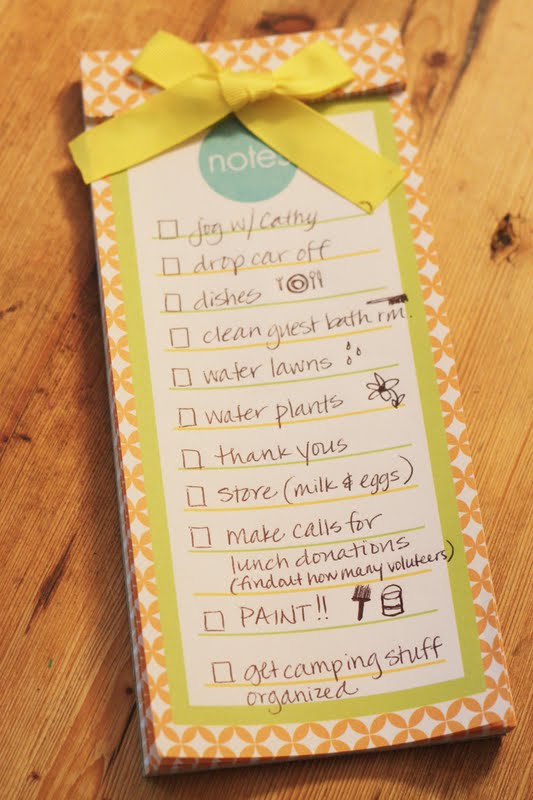 notes
jog w/ cathy
drop car off
dishes
clean guest bath rm.
water lawns
water plants
thank yous
store (milk & eggs)
make calls for
lunch donations
(find out how many voluteers)
PAINT!!
get camping stuff
organized